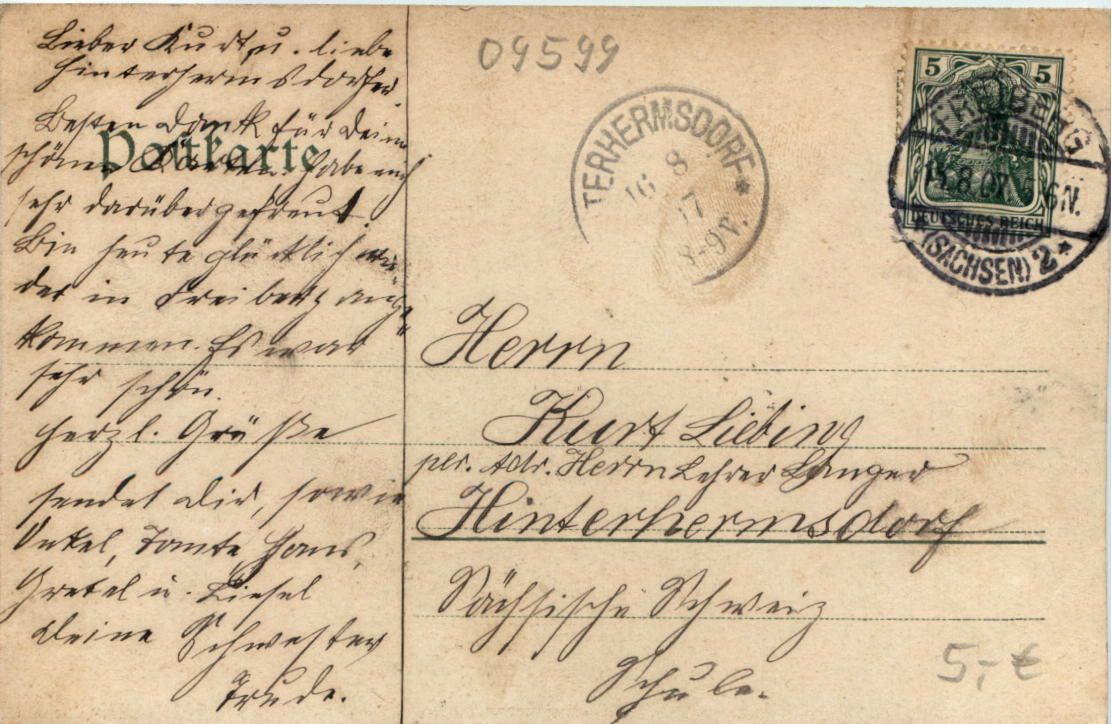 Lieber Kurt u. liebe
Hinterhermsdorfer.
Besten Dank für Deine
Postkarte
schöne Karte. Habe mich
sehr darüber gefreut.
Bin heute glücklich wie-
der in Freiberg ange-
kommen. Es war
sehr schön.
Herzl. Grüße
sendet Dir, sowie
Onkel, Tante, Hans,
Gretel u. Liesel
Deine Schwester
Trude.
09599
TERHERMSDORF *
16 8
8-9 V.
5 5
DEUTSCHES REICH
FREIBERG
15.8.07. 5-6 N.
(SACHSEN) 2 *
Herrn
Kurt Liebing
Adr. Herrn Lehrer Langer
Hinterhermsdorf
Sächsische Schweiz
Schule.
5,- €